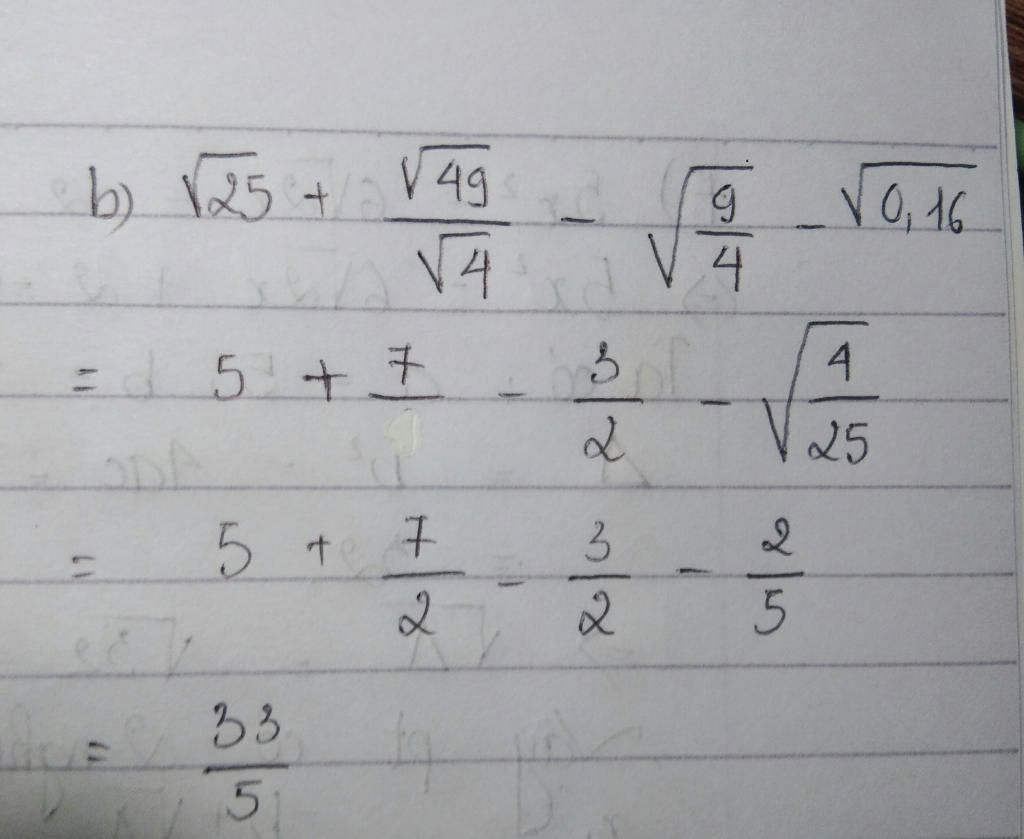 b) √25 + √49/√4 - √(9/4) - √0,16
= 5 + 7/ - 3/2 - √(4/25)
= 5 + 7/2 - 3/2 - 2/5
= 33/5